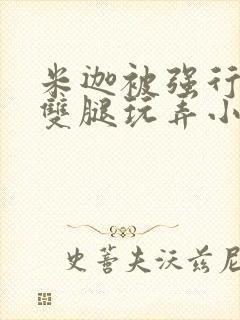 米迦被强行
雙腿玩弄小
史蒈夫沃兹尼